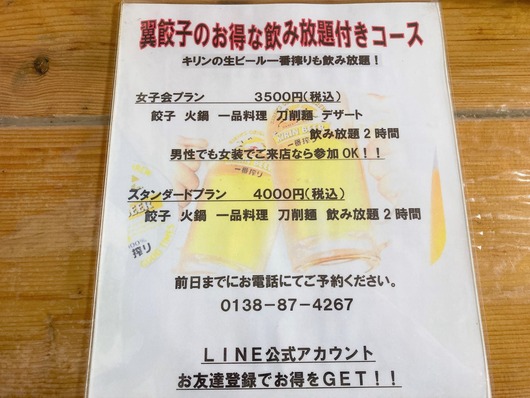 翼餃子のお得な飲み放題付きコース
キリンの生ビール一番搾りも飲み放題！
女子会プラン 3500円(税込)
餃子 火鍋 一品料理 刀削麺 デザート
飲み放題２時間
男性でも女装でご来店なら参加OK！！
スタンダードプラン 4000円(税込)
餃子 火鍋 一品料理 刀削麺 飲み放題２時間
前日までにお電話にてご予約ください。
0138-87-4267
ＬＩＮＥ公式アカウント
お友達登録でお得をGET！！